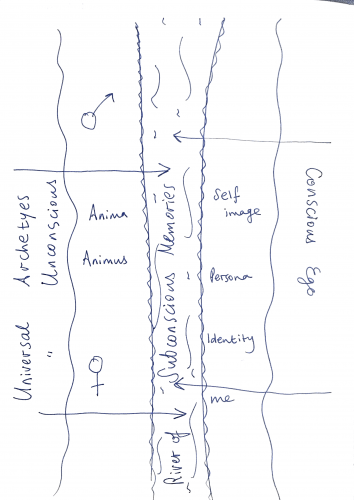 Universal Archetypes
" Unconscious
Anima
Animus
River of Subconscious Memories
Self
image
Persona
Identity
me
Conscious Ego